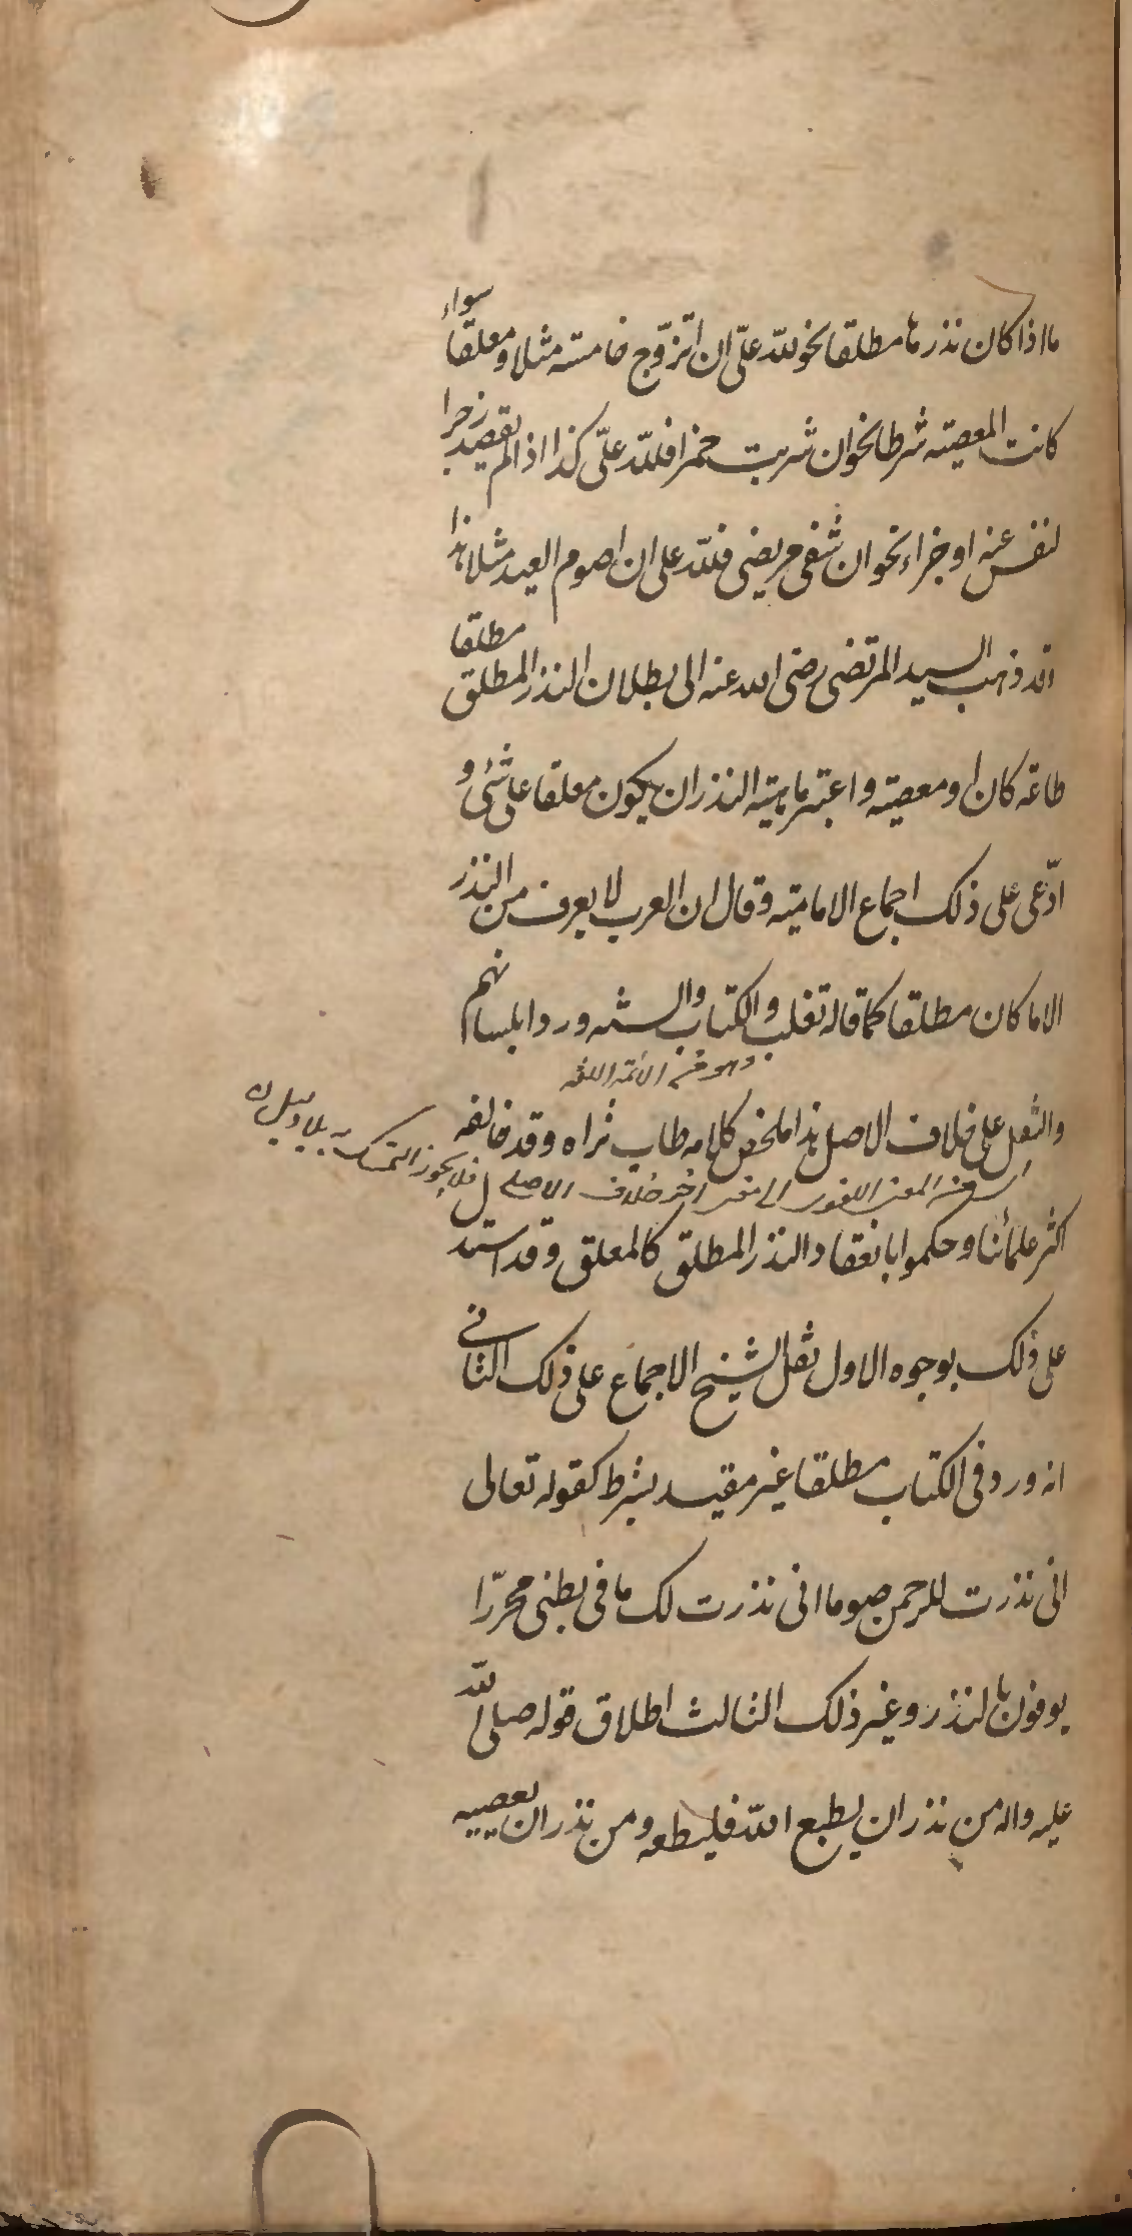 ما اذا كان نذرها مطلقا نحو لله علىّ ان اتزوّج خامسته مثلا و معلقا سواء
كانت المعصيته شرطا نحو ان شربت خمرا فلله علىّ كذا اذا لم يقصد زجرا
لنفس عنه او جزاء نحو ان شفى مريضى فلله على ان اصوم العيد مثلا هذا
وقد ذهب السيد المرتضى رضى الله عنه الى بطلان النذر المطلق مطلقا
طاعه كان او معصيته و اعتبر ماهيته النذر ان يكون معلقا على شئ و
ادّعى على ذلك اجماع الاماميته و قال ان العرب لا يعرف من النذر
الا ما كان مطلقا كما قاله تغلب و الكتاب و السنه وردا بلسانهم
وهو من الائمة اللغه
والنقل على خلاف الاصل هذا ملخص كلامه طاب ثراه و قد خالفه
اى من المعنى اللغوى الى معنى اخر خلاف الاصل فلا يجوز التمسك به بلا دليل
اكثر علمائنا و حكموا بانعقاد النذر المطلق كالمعلق و قد استد
على ذلك بوجوه الاول نقل الشيخ الاجماع على ذلك الثانى
انه ورد فى الكتاب مطلقا غير مقيد بشرط كقوله تعالى
انى نذرت للرحمن صوما انى نذرت لك ما فى بطنى محرّرا
يوفون بالنذر و غير ذلك الثالث اطلاق قوله صلى الله
عليه و اله من نذر ان يطيع الله فليطعه و من نذر ان يعصيه